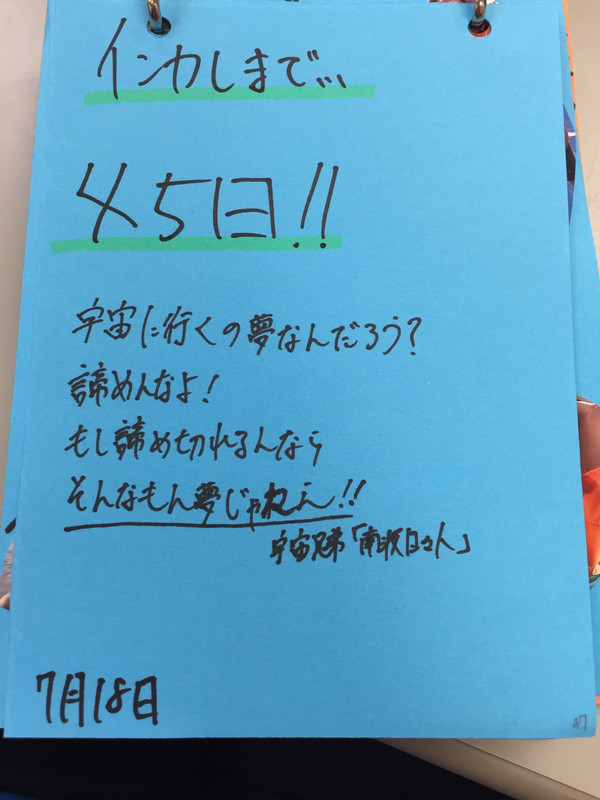 インカレまで...
45日!!
宇宙に行くの夢なんだろう?
諦めんなよ!
もし諦め切れるんなら
そんなもん夢じゃねえ!!
宇宙兄弟「南波日々人」
7月18日
47